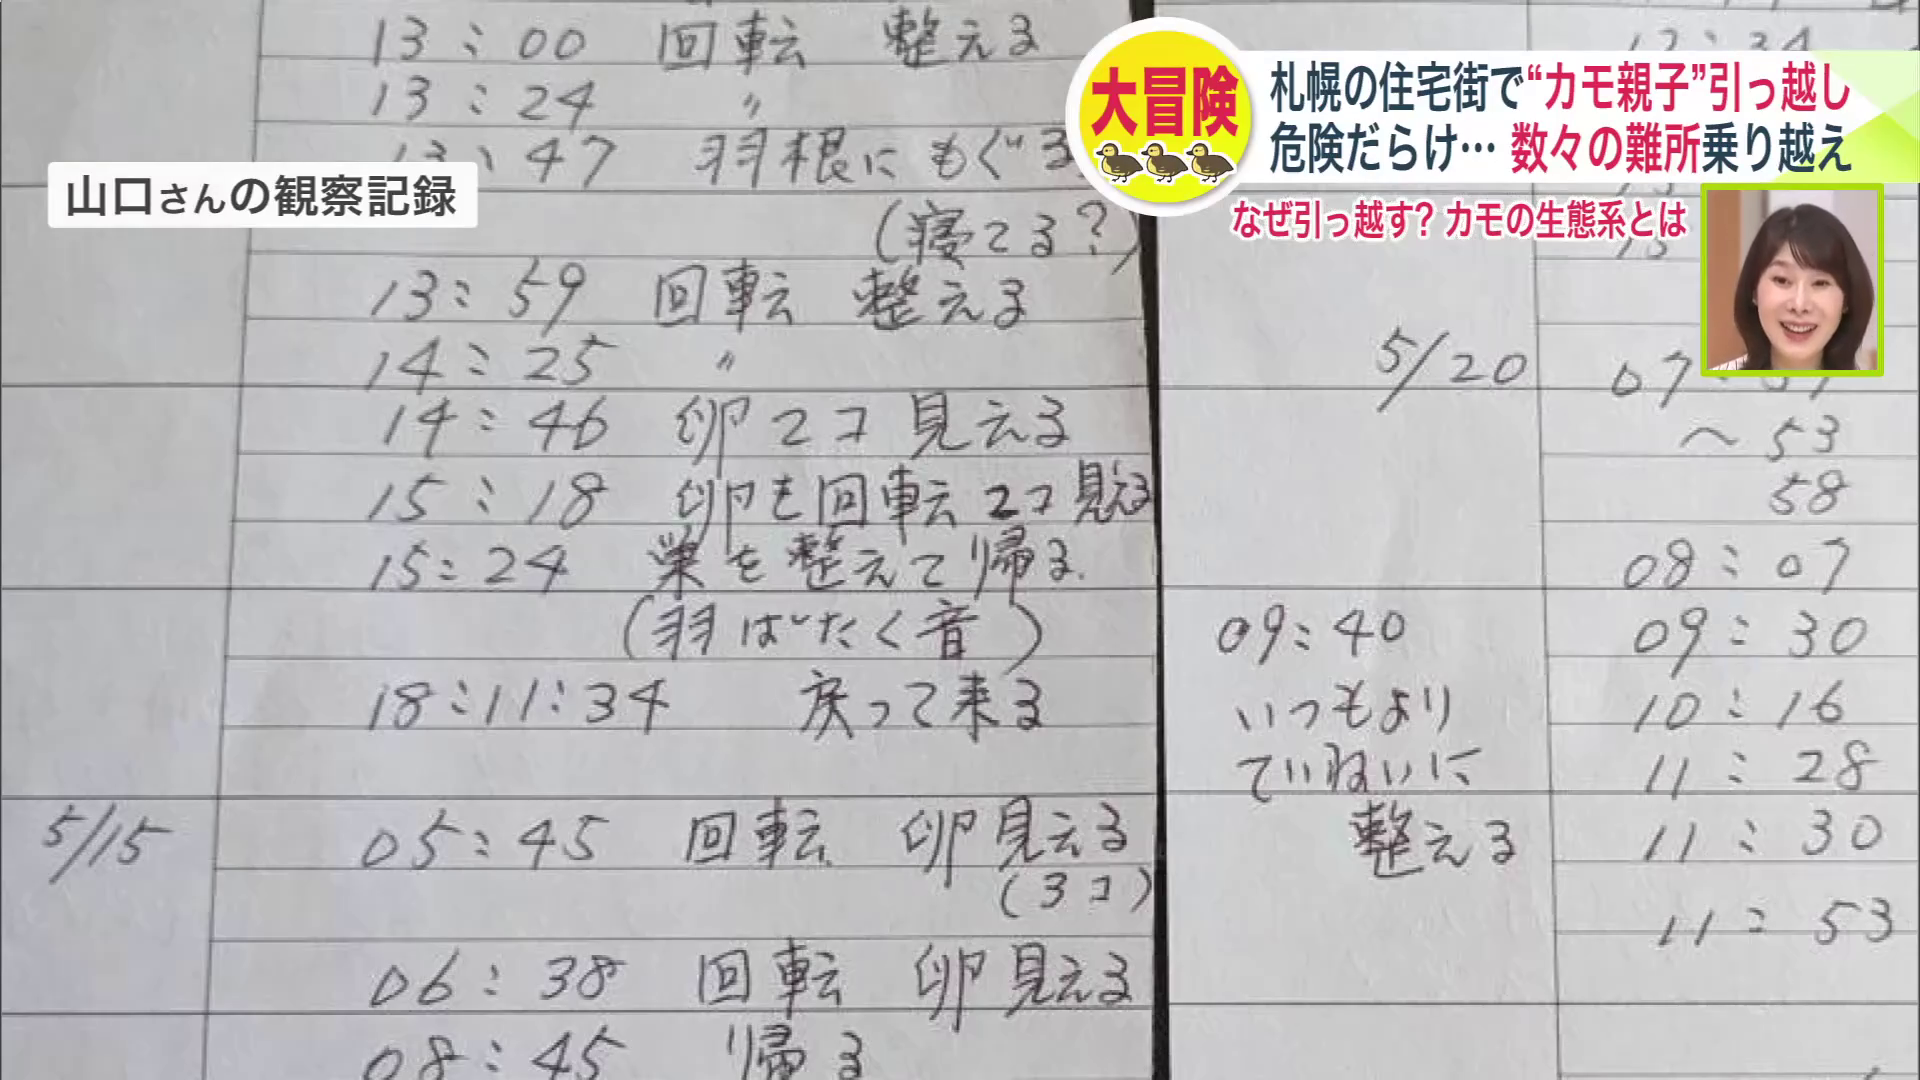 大冒険
札幌の住宅街で“カモ親子”引っ越し
危険だらけ… 数々の難所乗り越え
なぜ引っ越す? カモの生態系とは
山口さんの観察記録
13:00 回転 整える
13:24 〃
13:47 羽根にもぐる
(寝てる?)
13:59 回転 整える
14:25 〃
14:46 卵2コ 見える
15:18 卵を回転 2コ見える
15:24 巣を整えて帰る.
(羽ばたく音)
18:11:34 戻って来る
5/15 05:45 回転 卵見える
(3コ)
06:38 回転 卵見える
08:45 帰る
12:34
5/20
〜53
58
08:07
09:40
いつもより
ていねいに
整える
09:30
10:16
11:28
11:30
11:53